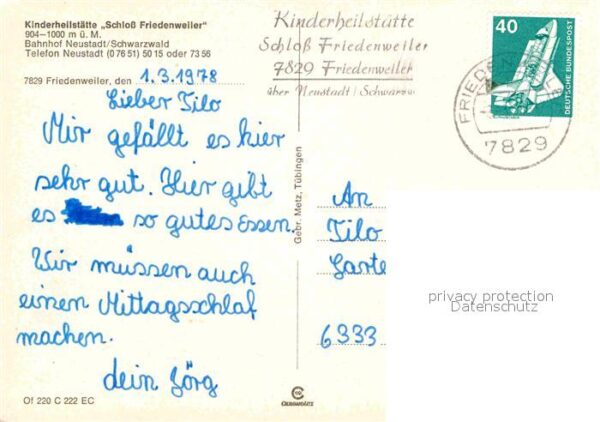 Kinderheilstätte „Schloß Friedenweiler"
904–1000 m ü. M.
Bahnhof Neustadt/Schwarzwald
Telefon Neustadt (0 76 51) 50 15 oder 73 56
7829 Friedenweiler, den 1.3.1978
Lieber Tilo
Mir gefällt es hier
sehr gut. Hier gibt
es so gutes Essen.
Wir müssen auch
einen Mittagsschlaf
machen.
dein Jörg
Of 220 C 222 EC
Gebr. Metz, Tübingen
Kinderheilstätte
Schloß Friedenweiler
7829 Friedenweiler
über Neustadt/Schwarzw
40
DEUTSCHE BUNDESPOST
7829
An
Tilo
Garte
6333
privacy protection
Datenschutz